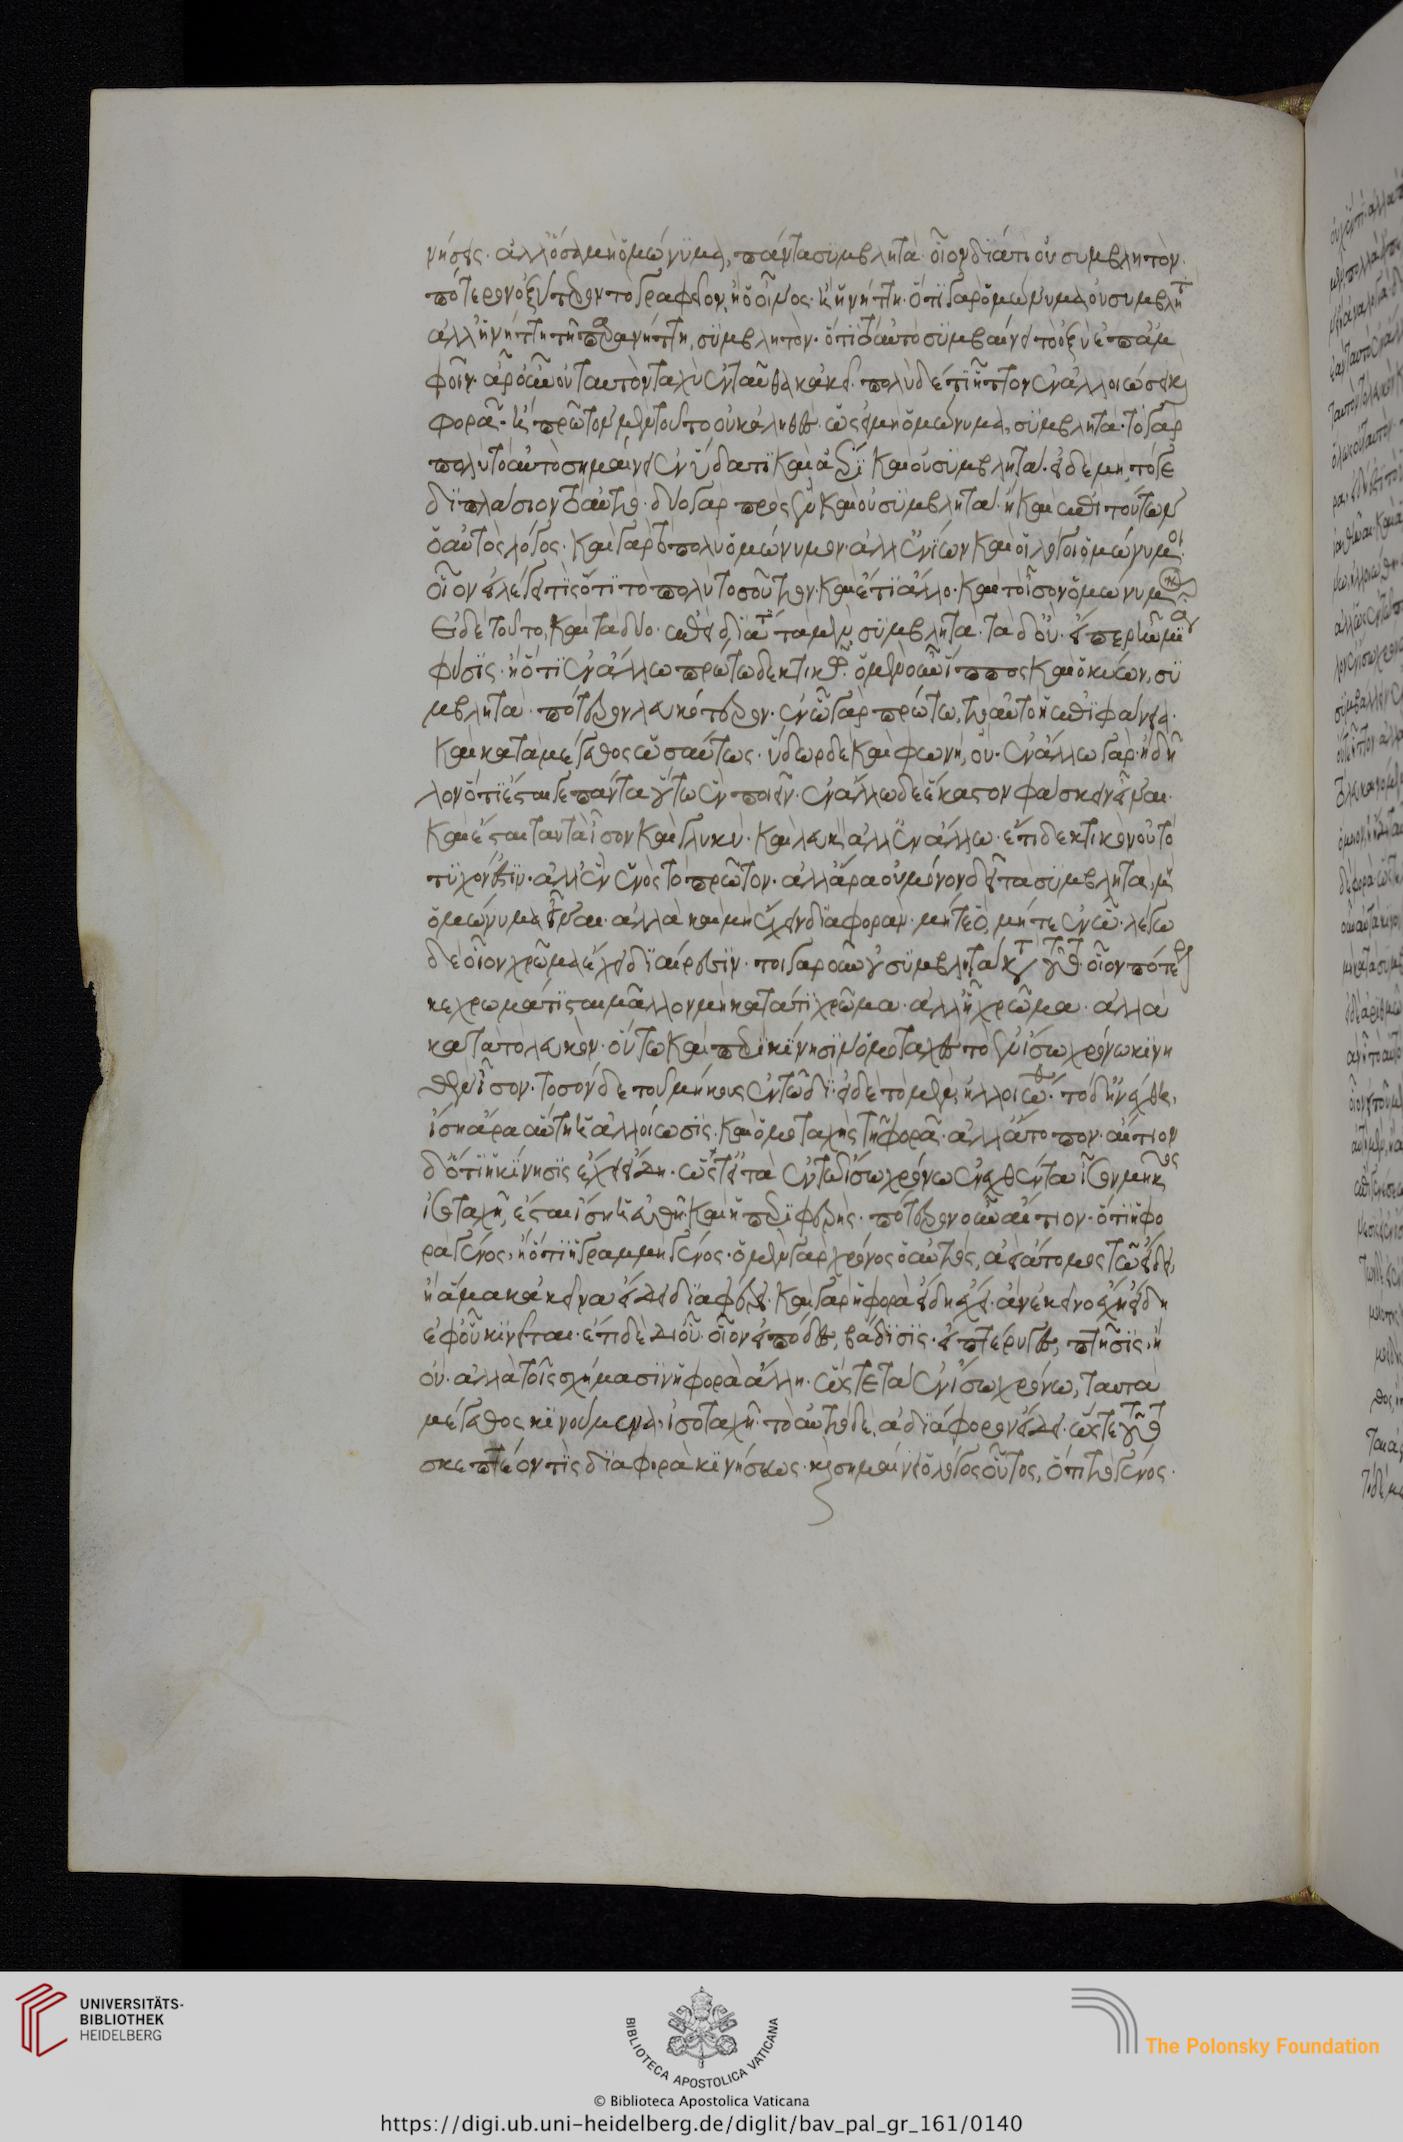 νήσεις. ἀλλ' ὅσα μὴ ὁμώνυμα, πάντα συμβλητά. οἷον διά τι οὐ συμβλητὸν.
πότερον ὀξύτερον τὸ γραφεῖον, ἢ ὁ οἶνος. ἢ ἡ νήτη. ὅτι γὰρ ὁμώνυμα οὐ συμβλητ
ἀλλ' ἡ νήτη τῆ παρανήτη, συμβλητόν. ὅτι τ' αὐτὸ συμβαίνει τὸ ὀξὺ ἐπ' ἀμ
φοῖν. ἆρ' οὖν οὐ ταυτὸν ταχὺ ἐνταῦθα κἀκεῖ. πολὺ δέ τι ἧττον ἐν ἀλλοιώσει καὶ
φορᾶ. ἢ πρῶτον μὲν τοῦτο οὐκ ἀληθὲς. ὡς εἰ μὴ ὁμώνυμα, συμβλητά. τὸ γὰρ
πολὺ τὸ αὐτὸ σημαίνει ἐν ὕδατι καὶ ἀέρι καὶ οὐ συμβλητά. εἰ δὲ μὴ, τό γε
διπλάσιον τ' αὐτό. δύο γὰρ πρὸς ἓν καὶ οὐ συμβλητά. ἢ καὶ ἐπὶ τούτων
ὁ αὐτὸς λόγος. καὶ γὰρ τὸ πολὺ ὁμώνυμον. ἀλλ' ἐνίων καὶ οἱ λόγοι ὁμώνυμοι.
οἷον εἰ λέγει τις ὅτι τὸ πολὺ τοσοῦτον. καὶ ἔτι ἄλλο. καὶ τὸ ἴσον ὁμώνυμον
εἰ δὲ τοῦτο, καὶ τὰ δύο. ἐπεὶ διατί τὰ μὲν συμβλητὰ. τὰ δ' οὔ. εἴπερ ἦν μία
φύσις. ἢ ὅτι ἐν ἄλλω πρώτω δεκτικῶ. ὁ μὲν οὖν ἵππος καὶ ὁ κύων, συ
μβλητὰ. πότερον λευκότερον. ἐν ὧ γὰρ πρώτω, τὸ αὐτὸ ἡ ἐπιφάνεια.
καὶ κατὰ μέγεθος ὡσαύτως. ὕδωρ δὲ καὶ φωνὴ, οὐ. ἐν ἄλλω γὰρ. ἢ δῆ
λον ὅτι ἔσται γε πάντα οὕτω ἓν ποιεῖν. ἐν ἄλλω δὲ ἕκαστον φάσκειν εἶναι.
καὶ ἔσται ταυτὰ ἴσον καὶ γλυκὺ. καὶ λευκὸν ἀλλ' ἐν ἄλλω. ἔτι δεκτικὸν οὐ τὸ
τυχόν ἐστιν. ἀλλ' ἓν ἑνὸς τὸ πρῶτον. ἀλλ' ἆρα οὐ μόνον δεῖ τὰ συμβλητὰ, μὴ
ὁμώνυμα εἶναι. ἀλλὰ καὶ μὴ ἔχειν διαφορὰν. μήτε ὃ, μήτε ἐν ὧ. λέγω
δὲ οἷον χρῶμα ἔχει διαίρεσιν. τοιγαροῦν οὐ συμβλητὰ κατὰ τοῦτο. οἷον πότερον
κεχρωμάτισται μᾶλλον μὴ κατά τι χρῶμα. ἀλλ' ἧ χρῶμα. ἀλλὰ
κατὰ τὸ λευκὸν. οὕτω καὶ περὶ κίνησιν ὁμοταχὲς τὸ ἐν ἴσω χρόνω κινη
θὲν ἴσον. τοσόνδε τοῦ μήκους ἐν τωδὶ. εἰ δὲ τὸ μὲν, ἠλλοιώθη. τὸ δ' ἠνέχθη,
ἴση ἄρα αὕτη ἡ ἀλλοίωσις. καὶ ὁμοταχὴς τῆ φορᾶ. ἀλλ' ἄτοπον. αἴτιον
δ' ὅτι ἡ κίνησις ἔχει εἴδη. ὥστ' εἰ τὰ ἐν τωδὶ ἴσω χρόνω ἐνεχθέντα ἴσον μῆκος
ἰσοταχῆ, ἔσται ἴση ἡ εὐθεῖα καὶ ἡ περιφερὴς. πότερον οὖν αἴτιον. ὅτι ἡ φο
ρὰ γένος. ἢ ὅτι ἡ γραμμὴ γένος. ὁ μὲν γὰρ χρόνος ὁ αὐτὸς, ἀεὶ ἄτομος τῶ εἴδει,
ἢ ἅμα κἀκεῖνα εἴδει διαφέρει. καὶ γὰρ ἡ φορὰ εἴδη ἔχει. ἂν ἐκεῖνο ἔχη εἴδη
ἐφ' οὗ κινεῖται. ἔτι δὲ ἐὰν ὧ. οἷον εἰ πόδες, βάδισις. εἰ πτέρυγες, πτῆσις. ἢ
οὐ. ἀλλὰ τοῖς σχήμασιν ἡ φορὰ ἄλλη. ὥστε τὰ ἐν ἴσω χρόνω, ταυτὰ
μέγεθος κινούμενα, ἰσοταχῆ. τὸ αὐτὸ δὲ, ἀδιάφορον εἴδει. ὥστε τοῦτο
σκεπτέον τίς διαφορὰ κινήσεως. καὶ σημαίνει ὁ λόγος οὗτος, ὅτι τὸ γένος.
UNIVERSITÄTS-
BIBLIOTHEK
HEIDELBERG
BIBLIOTECA APOSTOLICA VATICANA
The Polonsky Foundation
© Biblioteca Apostolica Vaticana
https://digi.ub.uni-heidelberg.de/diglit/bav_pal_gr_161/0140